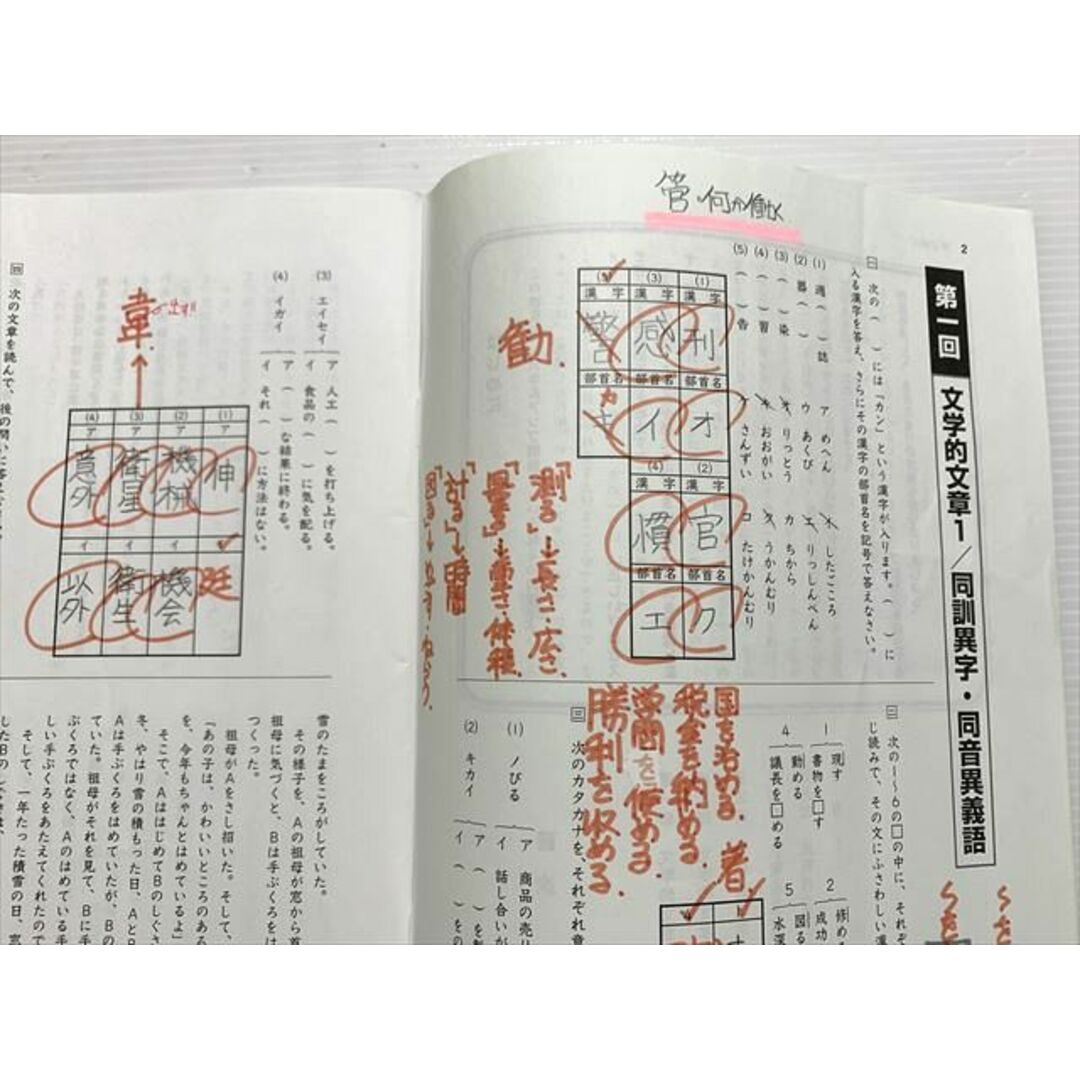 2
管・何か働く
第一回 文学的文章1/同訓異字・同音異義語
一 次の( )には「カン」という漢字が入ります。( )に
入る漢字を答え、さらにその漢字の部首名を記号で答えなさい。
(1) 週( )誌
(2) 器( )
(3) ( )染
(4) ( )習
(5) ( )告
ア めへん
イ したごころ
ウ あくび
エ りっしんべん
オ りっとう
カ ちから
キ おおがい
ク うかんむり
ケ さんずい
コ たけかんむり
(1) 漢字 刊 部首名 オ
(3) 漢字 感 部首名 イ
漢字 警 部首名 カ
(2) 漢字 官 部首名 ク
(4) 漢字 慣 部首名 エ
勧.
「測る」→長さ・広さ
「量る」→重さ・体積
「計る」→時間
二 次の1〜6の□の中に、それぞ
じ読みで、その文にふさわしい漢
1 現す
書物を□す
2 修め
成功
4 勤める
議長を□める
5 図る
水深
国を治める.
税金を納める.
学問を修める.
勝利を収める.
着
三 次のカタカナを、それぞれ意
(1) ノびる
ア 商品の売り
イ 話し合いが
(2) キカイ
ア ( )を
イ ( )をの
(3) エイセイ
ア 人工( )を打ち上げる。
イ 食品の( )に気を配る。
(4) イガイ
ア ( )な結果に終わる。
イ それ( )に方法はない。
(1) ア 伸 イ 延
(2) ア 機械 イ 機会
(3) ア 衛星 イ 衛生
(4) ア 意外 イ 以外
韋.
四 次の文章を読んで、後の問いに答え
雪のたまをころがしていた。
その様子を、Aの祖母が窓から首
祖母に気づくと、Bは手ぶくろをは
つくった。
祖母がAをさし招いた。そして、
「あの子は、かわいいところのある
を、今年もちゃんとはめているよ」
そこで、AははじめてBのしぐさ
冬、やはり雪の積もった日、AとB
Aは手ぶくろをはめていたが、Bの
ていた。祖母がそれを見て、Bに手
ぶくろではなく、Aのはめている手
しい手ぶくろをあたえてくれたので
そして、一年たった積雪の日、窓